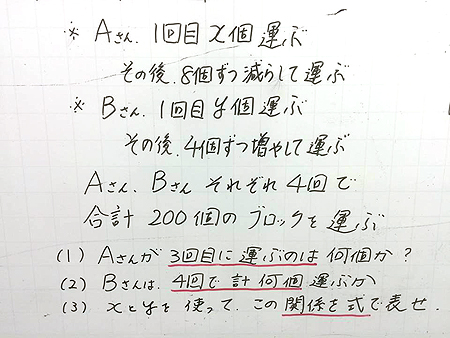 ※ Aさん. 1回目 x個 運ぶ
その後. 8個ずつ減らして運ぶ
※ Bさん. 1回目 y個 運ぶ
その後. 4個ずつ増やして運ぶ
Aさん. Bさん それぞれ 4回で
合計 200個のブロックを運ぶ
(1) Aさんが 3回目に運ぶのは何個か?
(2) Bさんは. 4回で計何個運ぶか
(3) xとyを使って. この関係を式で表せ.